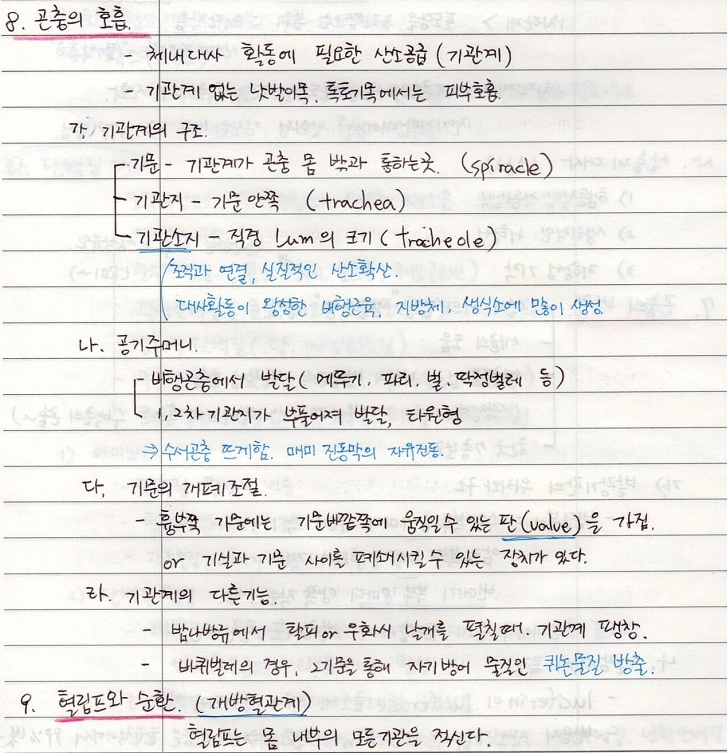 8. 곤충의 호흡.
- 체내대사 활동에 필요한 산소공급 (기관계)
- 기관계 없는 낫발이목, 톡토기목에서는 피부호흡.
가. 기관계의 구조.
기문 - 기관계가 곤충 몸 밖과 통하는곳. (spiracle)
기관지 - 기문 안쪽 (trachea)
기관소지 - 직경 1um의 크기 (tracheole)
조직과 연결, 실질적인 산소확산.
대사활동이 왕성한 비행근육, 지방체, 생식소에 많이 생성
나. 공기주머니.
비행곤충에서 발달 (메뚜기, 파리, 벌, 딱정벌레 등)
1, 2차 기관지가 부풀어져 발달, 타원형
⇒ 수서곤충 뜨게함. 매미 진동막의 자유진동.
다. 기문의 개폐조절.
- 흉부쪽 기문에는 기문바깥쪽에 움직일수 있는 판(value)을 가짐.
or 기실과 기문 사이를 폐쇄시킬 수 있는 장치가 있다.
라. 기관계의 다른기능.
- 밤나방류에서 탈피 or 우화시 날개를 펼칠때, 기관계 팽창.
- 바퀴벌레의 경우, 2기문을 통해 자기방어 물질인 퀴논물질 방출.
9. 혈림프와 순환. (개방혈관계)
혈림프는 몸 내부의 모든기관을 적신다.